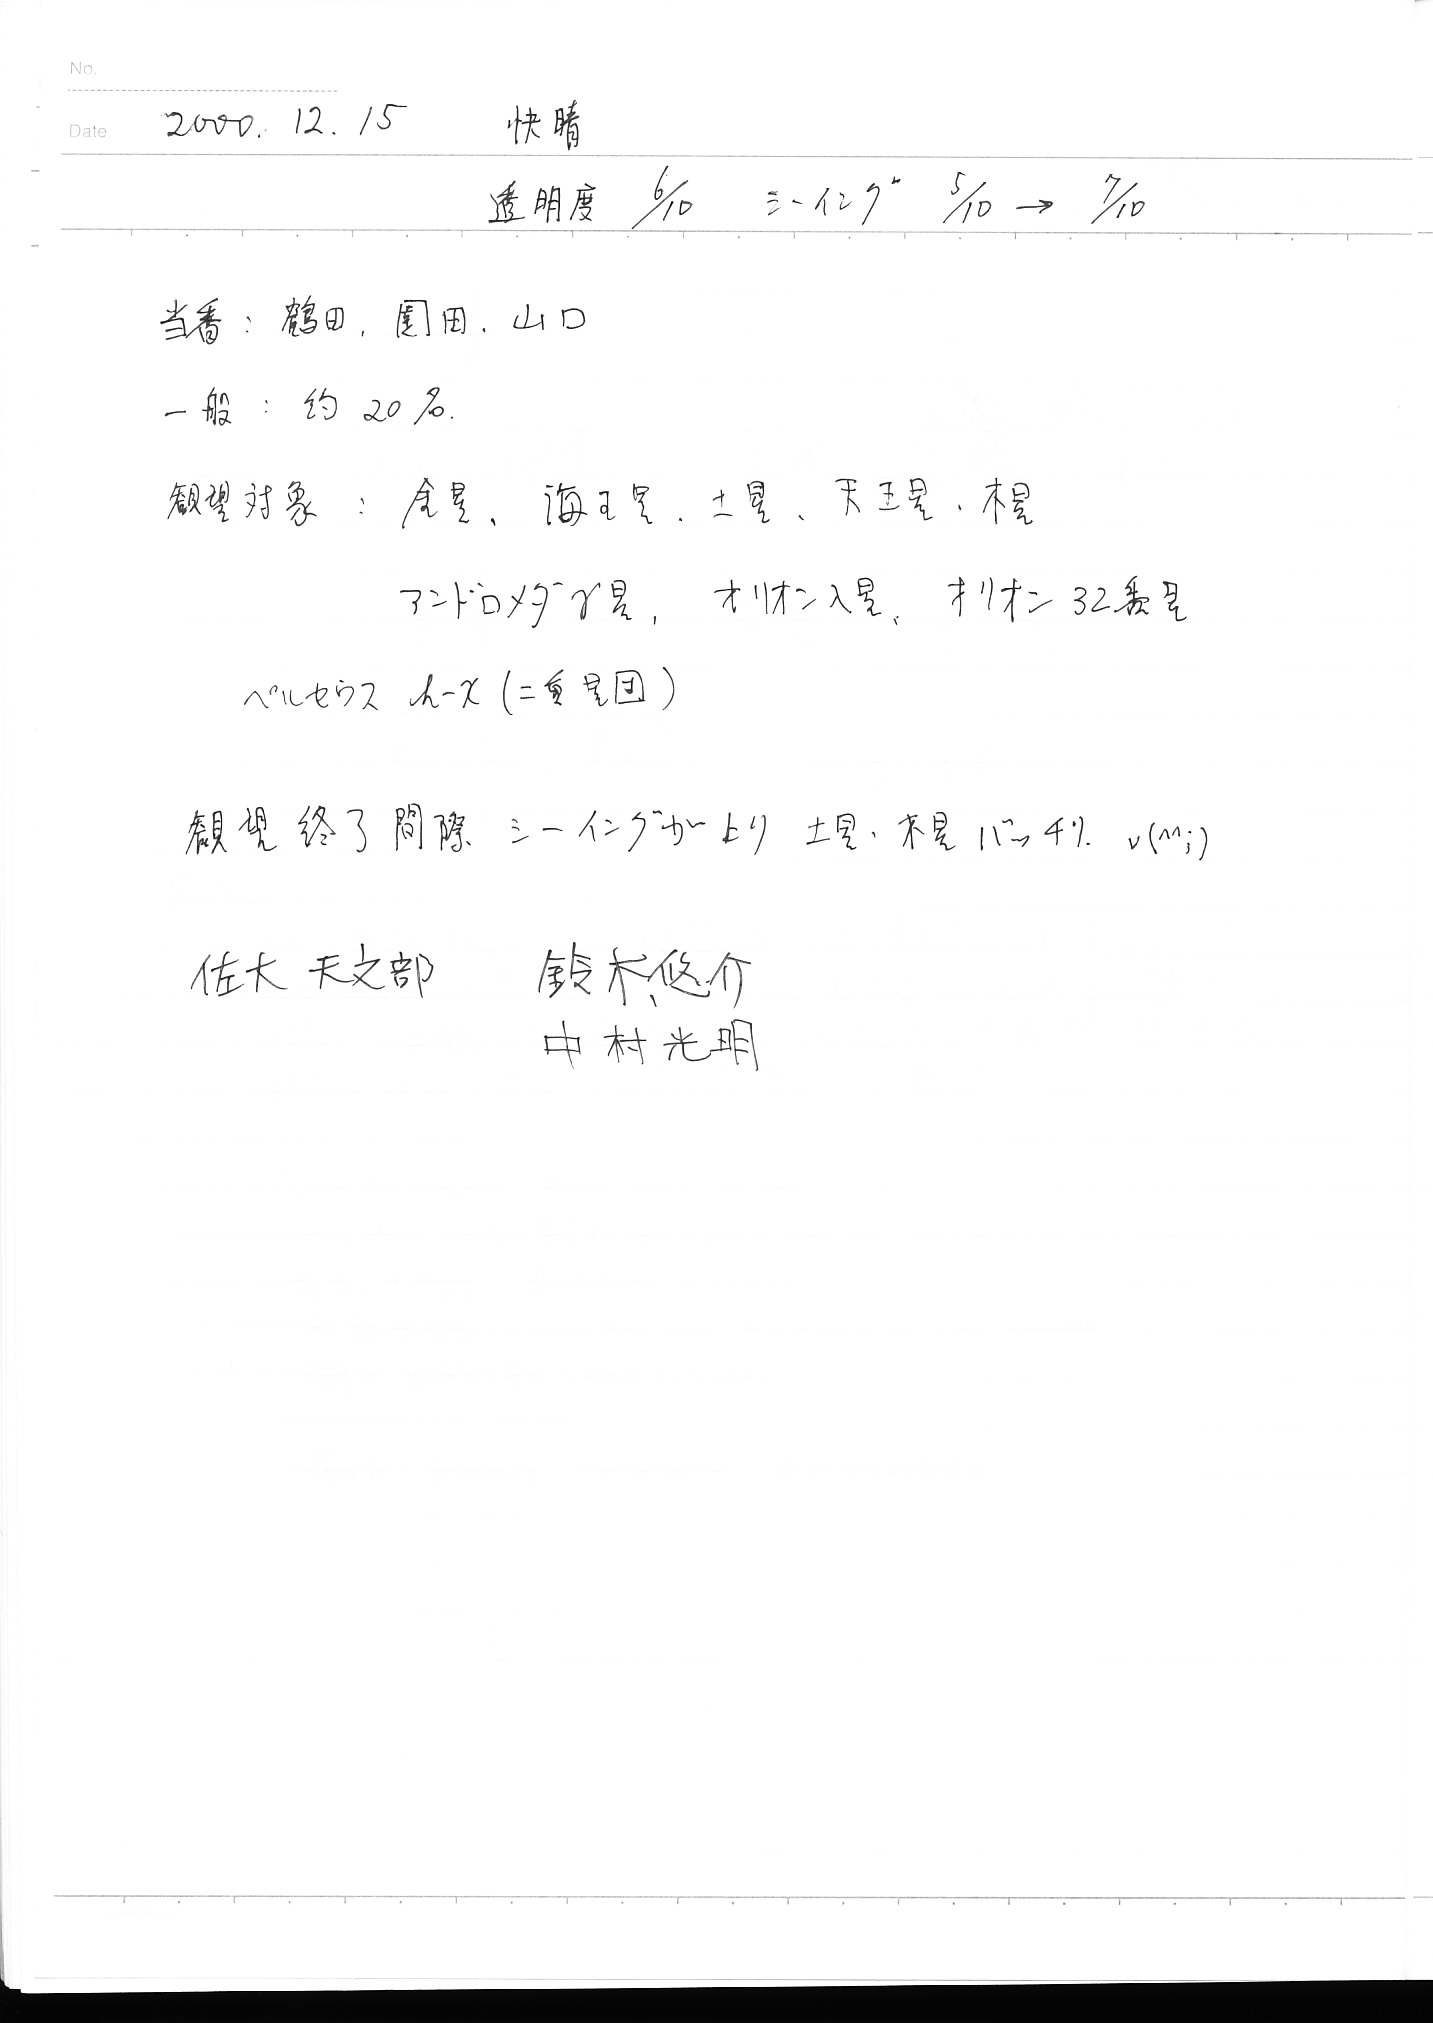 No.
Date 2000. 12. 15 快晴
透明度 6/10 シーイング 5/10 → 7/10
当番: 鶴田, 園田, 山口
一般: 約20名.
観望対象: 金星、海王星、土星、天王星、木星
アンドロメダγ星, オリオンλ星、オリオン32番星
ペルセウス h-χ (二重星団)
観望終了間際 シーイングが上り 土星・木星バッチリ. v(^^;)
佐大 天文部 鈴木悠介
中村光明